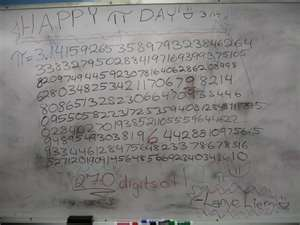 HAPPY π DAY!
π=3.14159265358979323846264
3383279502884197169399375105
82097494459230781640628620899
862803482534211706798214
808651328230664709384446
095505822317253594081284811745
0284102701938521105559644622
948954930381964428810975665
933446128475648233786783
652712019091456485669234603486 10
270 digits of π!